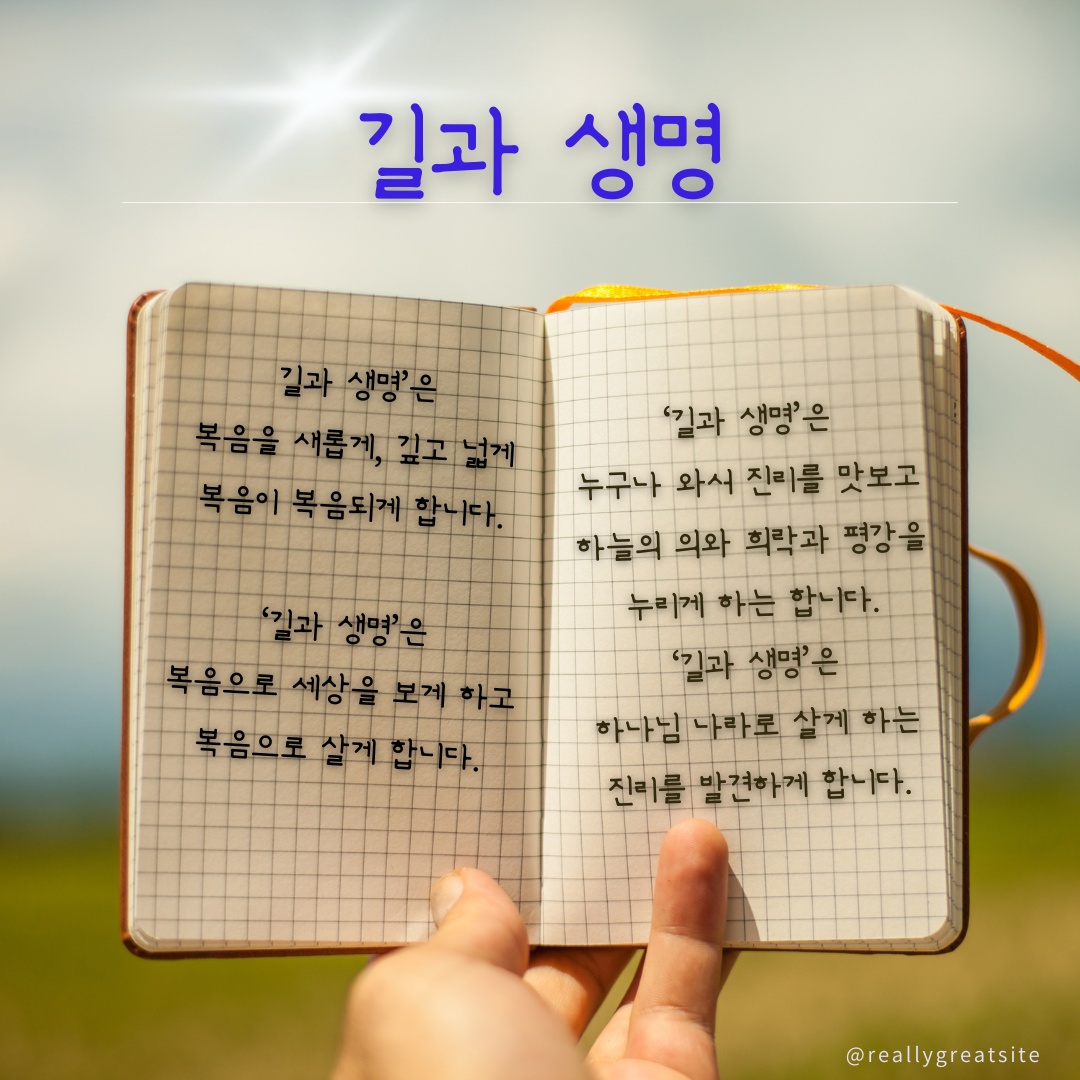 길과 생명
길과 생명’은
복음을 새롭게, 깊고 넓게
복음이 복음되게 합니다.
‘길과 생명’은
복음으로 세상을 보게 하고
복음으로 살게 합니다.
‘길과 생명’은
누구나 와서 진리를 맛보고
하늘의 의와 희락과 평강을
누리게 하는 합니다.
‘길과 생명’은
하나님 나라로 살게 하는
진리를 발견하게 합니다.
@reallygreatsite